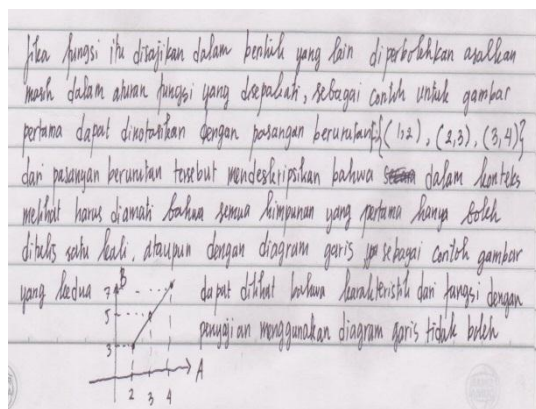 Jika fungsi itu disajikan dalam bentuk yang lain diperbolehkan asalkan
masih dalam aturan fungsi yang disepakati, sebagai contoh untuk gambar
pertama dapat dinotasikan dengan pasangan berurutan {(1,2), (2,3), (3,4)}
dari pasangan berurutan tersebut mendeskripsikan bahwa dalam konteks
melihat harus diamati bahwa semua himpunan yang pertama hanya boleh
ditulis satu kali, ataupun dengan diagram garis sebagai contoh gambar
yang kedua dapat dilihat bahwa karakteristik dari fungsi dengan
penyajian menggunakan diagram garis tidak boleh
B
7
5
3
A
2 3 4